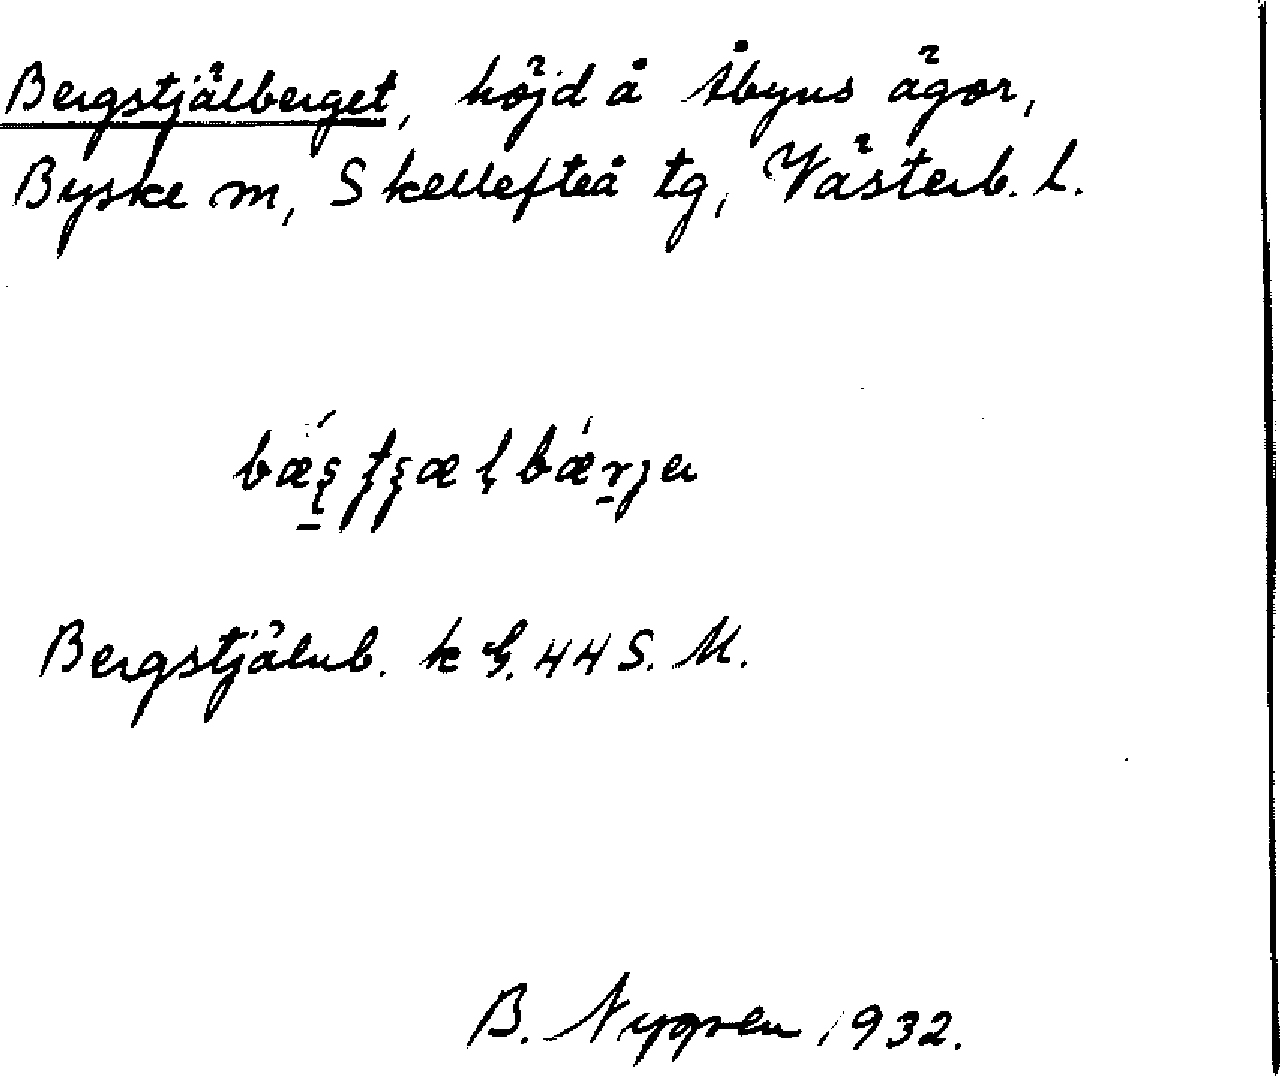 Bergstjälberget, höjd å Åbyns ägor,
Byske sn, Skellefteå tg, Västerb. l.
Bergstjälnb. k G. 44 S. M.
B. Nygren 1932.